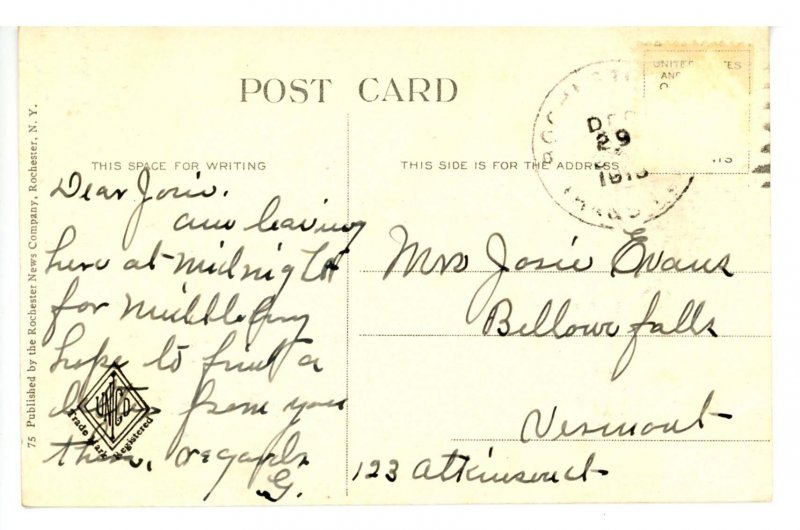 POST CARD
THIS SPACE FOR WRITING
THIS SIDE IS FOR THE ADDRESS
Dear Josie.
am leaving
here at midnight
for Middlebury
hope to find a
letter from you
there, regards
G.
Mrs Josie Evans
Bellows falls
Vermont
123 Atkinson st
75 Published by the Rochester News Company, Rochester, N. Y.
Trade Mark Registered
ROCHESTER
DEC
29
UNITED STATES
AND